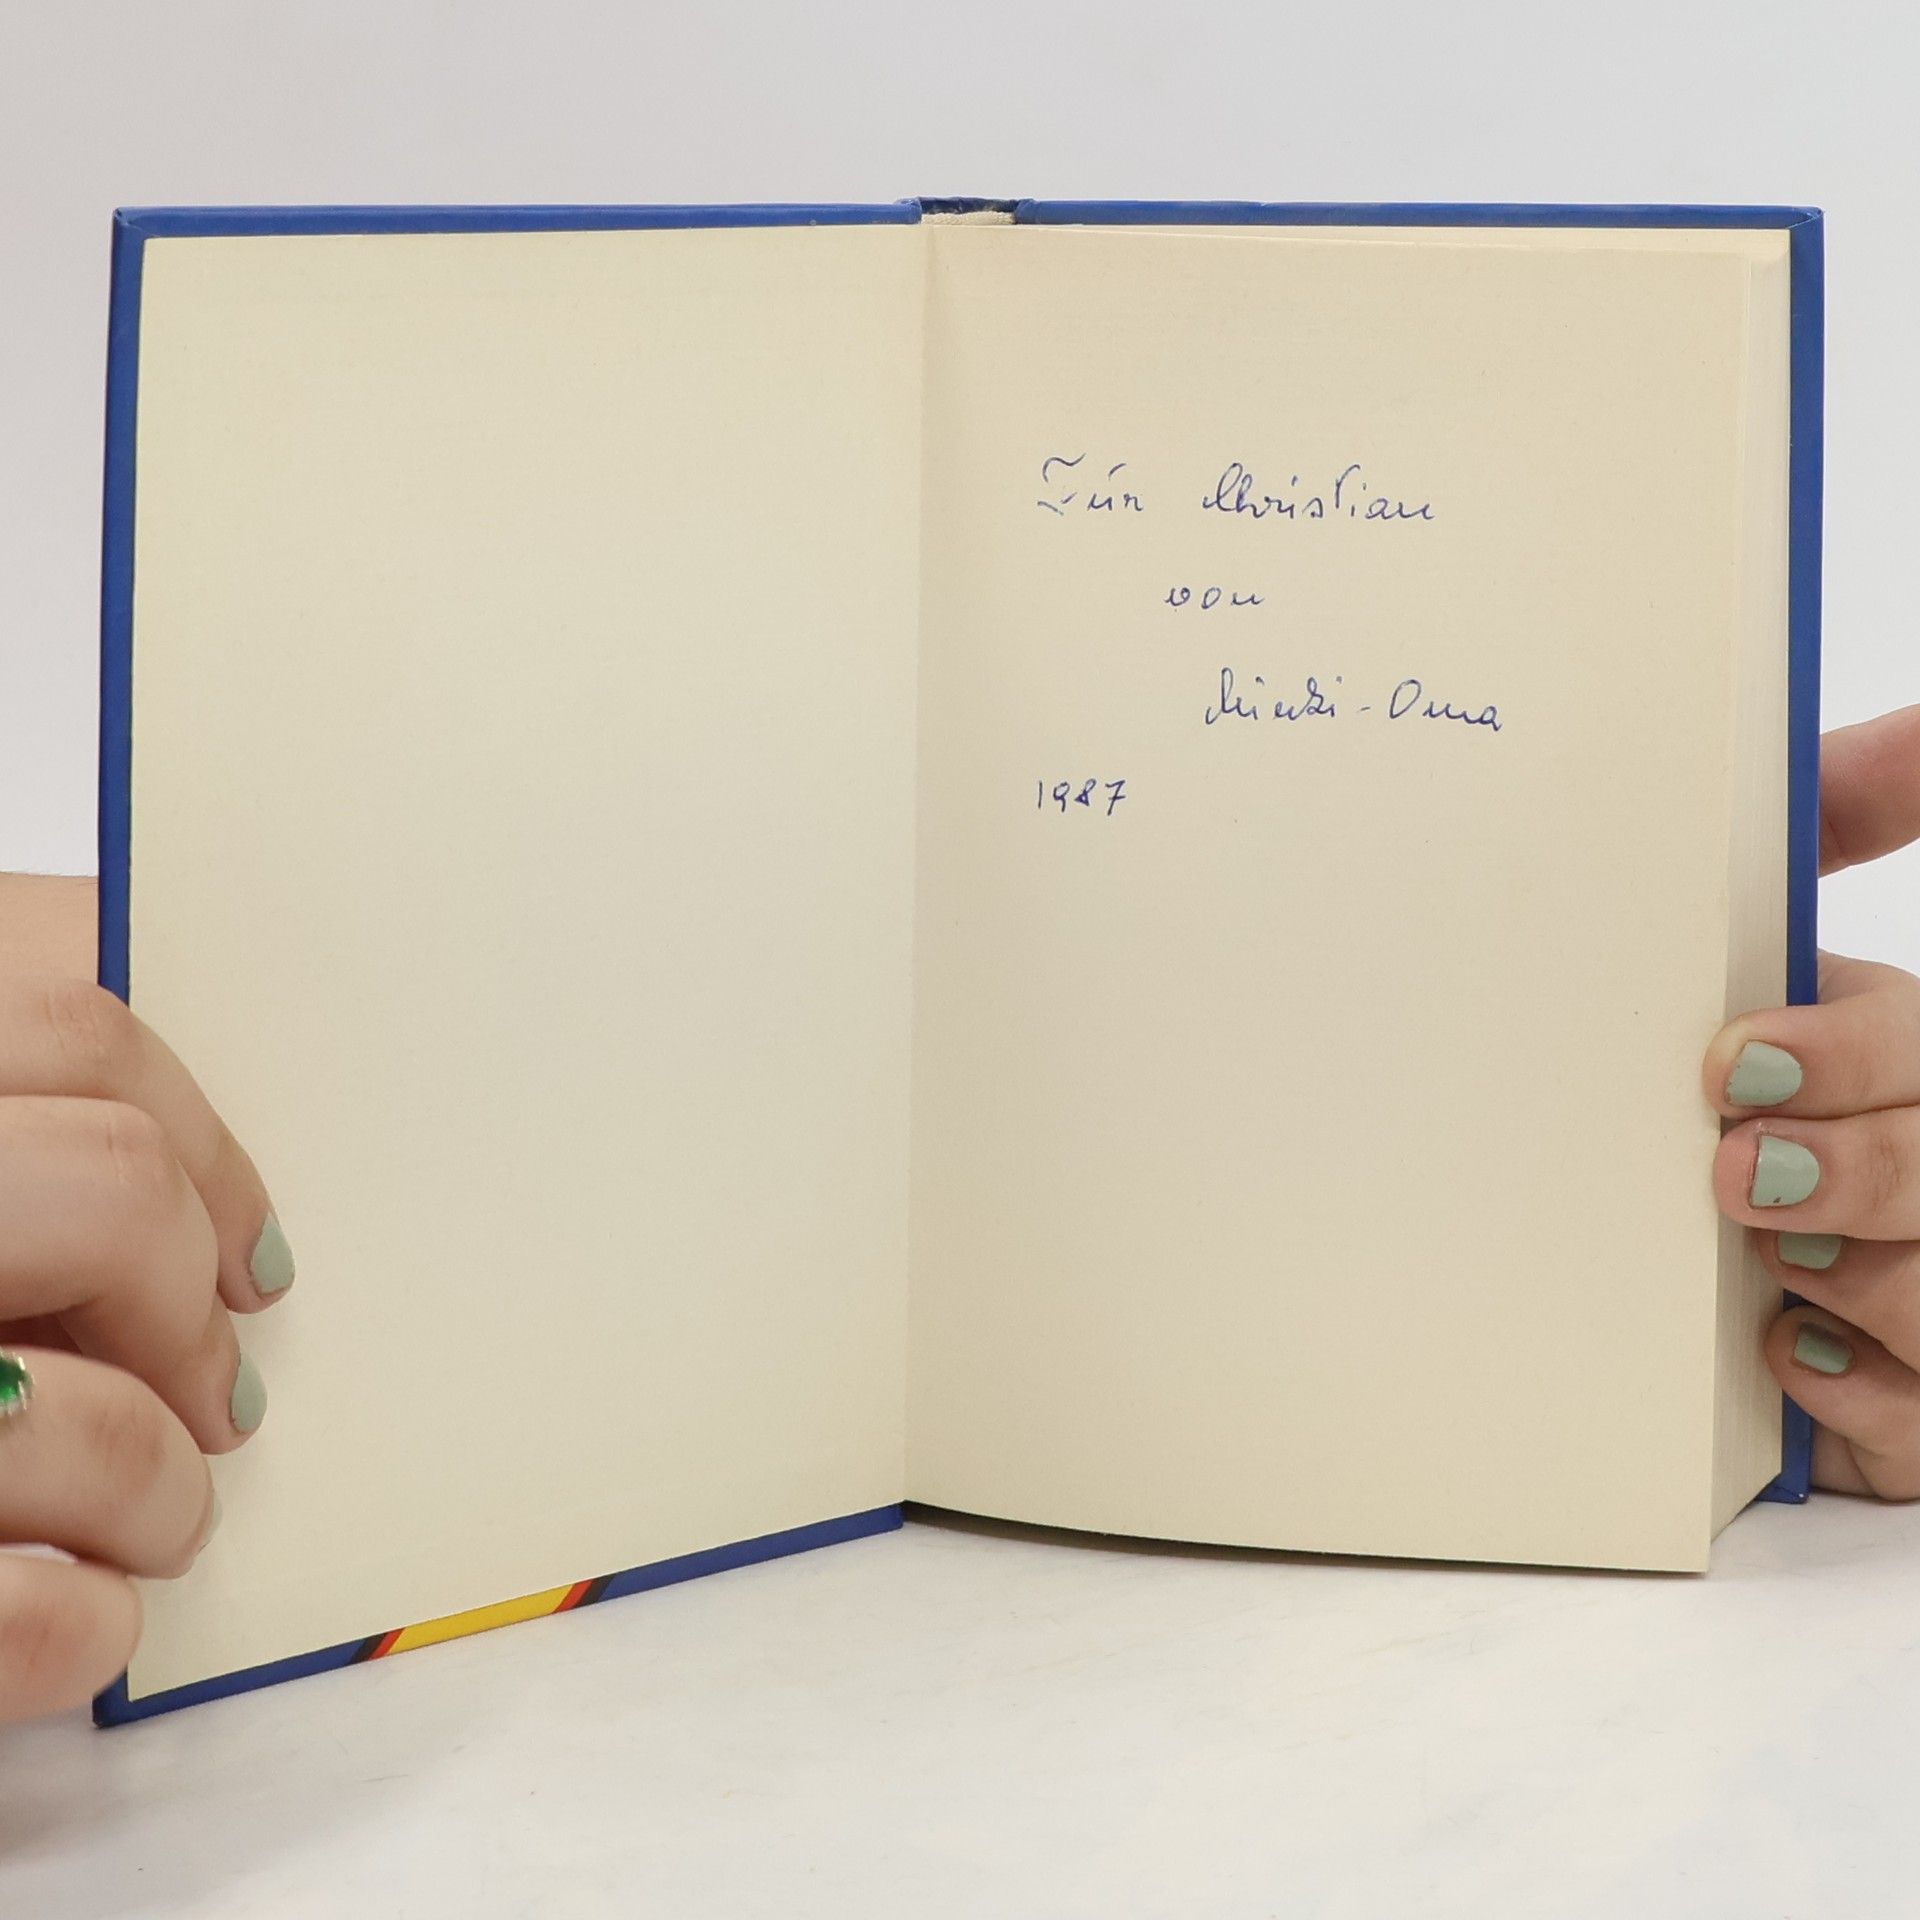 Für Christian
von
-Oma
1987